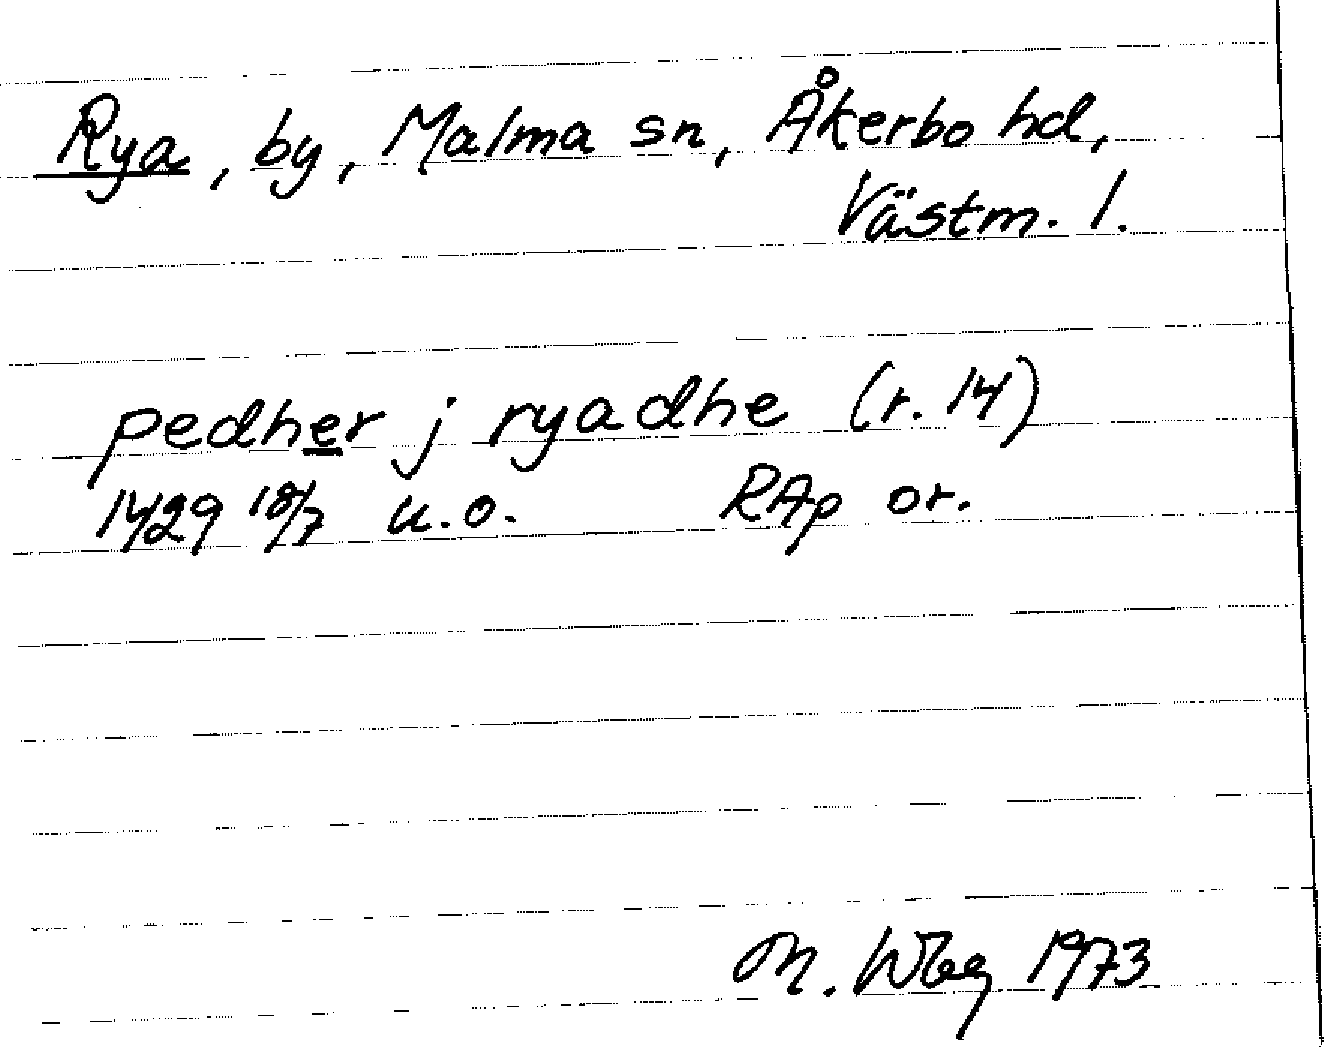 Rya, by, Malma sn, Åkerbo hd,
Västm. l.
pedher j ryadhe (r. 14)
1429 18/7 u.o. RAp or.
M. Wbg 1973